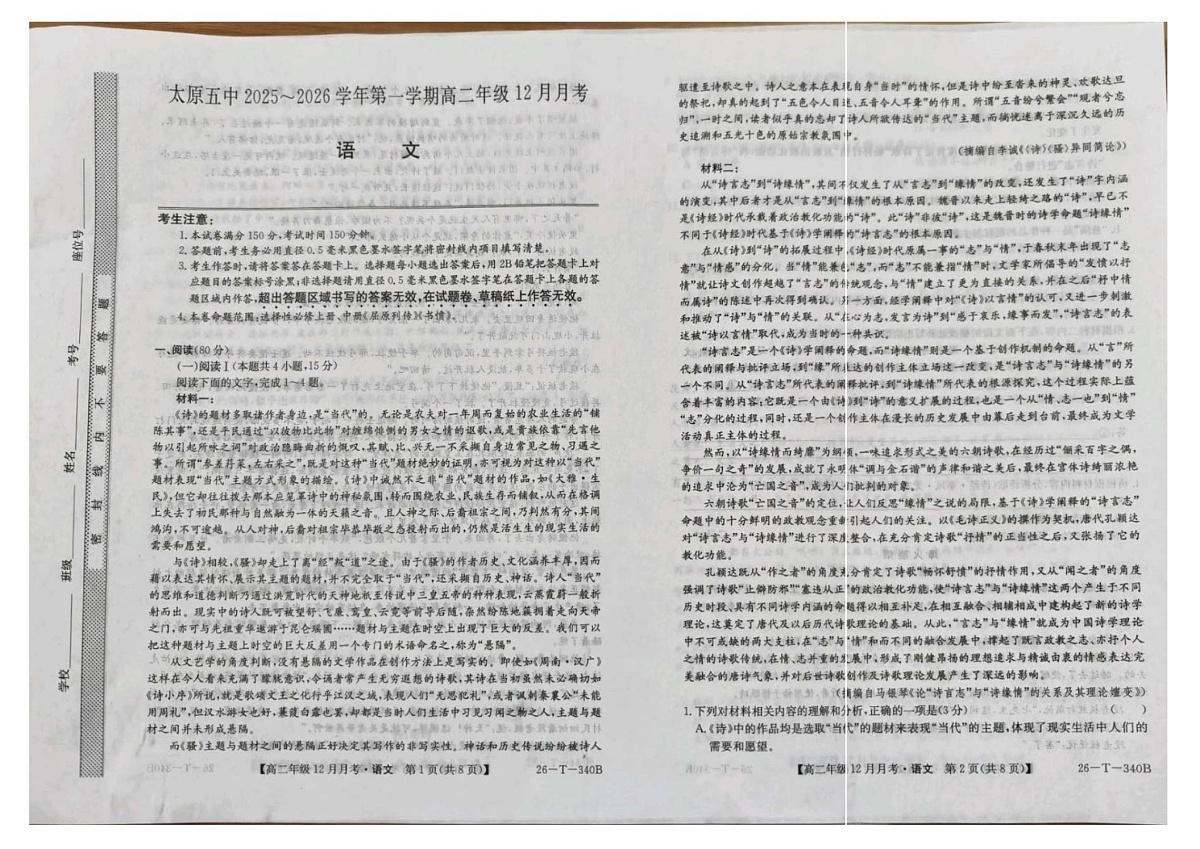 太原五中2025～2026学年第一学期高二年级12月月考
语 文
考生注意：
1.本试卷满分150分，考试时间150分钟。
2.答题前，考生务必用直径0.5毫米黑色墨水签字笔将密封线内项目填写清楚。
3.考生作答时，请将答案答在答题卡上。选择题每小题选出答案后，用2B铅笔把答题卡上对
应题目的答案标号涂黑；非选择题请用直径0.5毫米黑色墨水签字笔在答题卡上各题的答
题区域内作答，超出答题区域书写的答案无效，在试题卷、草稿纸上作答无效。
4.本卷命题范围：选择性必修上册、中册《屈原列传》《书愤》。
一、阅读(80分)
(一)阅读Ⅰ(本题共4小题，15分)
阅读下面的文字，完成1～4题。
材料一：
《诗》的题材多取诸作者身边，是“当代”的。无论是农夫对一年周而复始的农业生活的“铺
陈其事”，还是平民通过“以彼物比此物”对缠绵悱恻的男女之情的讴歌，或是贵族依靠“先言他
物以引起所咏之词”对政治隐晦曲折的慨叹，其赋、比、兴无一不采撷自身边常见之物、习遇之
事。所谓“参差荇菜，左右采之”，既是对这种“当代”题材绝妙的证明，亦可视为对这种以“当代”
题材表现“当代”主题方式形象的描绘。《诗》中诚然不乏非“当代”题材的作品，如《大雅·生
民》，但它却往往拨去那本应笼罩诗中的神秘氛围，转而围绕农业、民族生存而铺叙，从而在格调
上失去了初民那种与自然融为一体的天籁之音。且人神之际、后裔祖宗之间，乃判然有分，其间
鸿沟，不可逾越。从人对神，后裔对祖宗毕恭毕敬之态投射而出的，仍然是活生生的现实生活的
需要和愿望。
与《诗》相较，《骚》却走上了离“经”叛“道”之途。由于《骚》的作者历史、文化涵养丰厚，因而
藉以表达其情怀、展示其主题的题材，并不完全取于“当代”，还采撷自历史、神话。诗人“当代”
的思维和道德判断乃通过洪荒时代的天神地祇至传说中三皇五帝的种种表现，云蒸霞蔚一般折
射而出。现实中的诗人既可被望舒、飞廉、鸾皇、云霓等前导后随，杂然纷陈地簇拥着走向天帝
之门，亦可与先祖重华遨游于昆仑瑶圃……题材与主题在时空上出现了巨大的反差。我们可以
把这种题材与主题上时空的巨大反差用一个专门的术语命名之，称为“悬隔”。
从文艺学的角度判断，没有悬隔的文学作品在创作方法上是写实的。即使如《周南·汉广》
这样在今人看来充满了朦胧意识，令诵者常产生无穷遐想的诗歌，其诗在当初虽然未必确切如
《诗小序》所说，就是歌颂文王之化行乎江汉之域，表现人们“无思犯礼”，或者讽刺秦襄公“未能
用周礼”，但汉水游女也好，蒹葭白露也罢，却都是当时人们生活中习见习闻之物之人，主题与题
材之间并未形成悬隔。
而《骚》主题与题材之间的悬隔正好决定其写作的非写实性。神话和历史传说纷纷被诗人
【高二年级12月月考·语文 第1页(共8页)】 26-T-340B
驱遣至诗歌之中。诗人之意本在表现自身“当时”的情怀，但是诗中纷至沓来的神灵、欢歌达旦
的祭祀，却真的起到了“五色令人目迷，五音令人耳聋”的作用。所谓“五音纷兮繁会”“观者兮忘
归”，一时之间，读者似乎真的忘却了诗人所欲传达的“当代”主题，而徜恍迷离于深沉久远的历
史追溯和五光十色的原始宗教氛围中。
(摘编自李诚《〈诗〉〈骚〉异同简论》)
材料二：
从“诗言志”到“诗缘情”，其间不仅发生了从“言志”到“缘情”的改变，还发生了“诗”字内涵
的演变，其中后者才是从“言志”到“缘情”的根本原因。魏晋以来走上轻绮之路的“诗”，早已不
是《诗经》时代承载着政治教化功能的“诗”。此“诗”非彼“诗”，这是魏晋时的诗学命题“诗缘情”
不同于《诗经》时代基于《诗》学阐释的“诗言志”的根本原因。
在从《诗》到“诗”的拓展过程中，《诗经》时代原属一事的“志”与“情”，于春秋末年出现了“志
意”与“情感”的分化。当“情”能兼包“志”，而“志”不能兼指“情”时，文学家所倡导的“发愤以抒
情”就让诗文创作超越了“言志”的传统观念，与“情”建立了更为直接的关系，并在之后“杼中情
而属诗”的陈述中再次得到确认。另一方面，经学阐释中对“《诗》以言情”的认可，又进一步刺激
和推动了“诗”与“情”的关联。从“在心为志，发言为诗”到“感于哀乐，缘事而发”，“诗言志”的表
述被“诗以言情”取代，成为当时的一种共识。
“诗言志”是一个《诗》学阐释的命题，而“诗缘情”则是一个基于创作机制的命题。从“言”所
代表的阐释与批评立场，到“缘”所表达的创作主体立场这一改变，是“诗言志”与“诗缘情”的另
一个不同。从“诗言志”所代表的阐释批评，到“诗缘情”所代表的根源探究，这个过程实际上蕴
含着丰富的内容；它既是一个由《诗》到“诗”的意义扩展的过程，也是一个从“情、志一也”到“情”
“志”分化的过程，同时，还是一个创作主体在漫长的历史发展中由幕后走到台前，最终成为文学
活动真正主体的过程。
然而，以“诗缘情而绮靡”为纲领，一味追求形式之美的六朝诗歌，在经历过“俪采百字之偶，
争价一句之奇”的发展，成就了永明体“调与金石谐”的声律和谐之美后，最终在宫体诗绮丽浓艳
的追求中沦为“亡国之音”，成为人们批判的对象。
六朝诗歌“亡国之音”的定位，让人们反思“缘情”之说的局限，基于《诗》学阐释的“诗言志”
命题中的十分鲜明的政教观念重新引起人们的关注。以《毛诗正义》的撰作为契机，唐代孔颖达
对“诗言志”与“诗缘情”进行了深度整合，在充分肯定诗歌“抒情”的正当性之后，又张扬了它的
教化功能。
孔颖达既从“作之者”的角度充分肯定了诗歌“畅怀舒愤”的抒情作用，又从“闻之者”的角度
强调了诗歌“止僻防邪”“塞违从正”的政教功能，使“诗言志”与“诗缘情”这两个产生于不同
历史时段、具有不同诗学内涵的命题得以相互补足，在相互融合、相辅相成中建构起了新的诗学
理论，这奠定了唐代及以后历代诗歌理论的基础。从此，“言志”与“缘情”就成为中国诗学理论
中不可或缺的两大支柱，在“志”与“情”和而不同的融合发展中，撑起了既言政教之志、亦抒个人
之情的诗歌传统，在情、志并重的发展中，形成了刚健昂扬的理想追求与精诚由衷的情感表达完
美融合的唐诗气象，并对后世诗歌创作及诗歌理论发展产生了深远的影响。
(摘编自马银琴《论“诗言志”与“诗缘情”的关系及其理论嬗变》)
1.下列对材料相关内容的理解和分析，正确的一项是(3分) ( )
A.《诗》中的作品均是选取“当代”的题材来表现“当代”的主题，体现了现实生活中人们的
需要和愿望。
【高二年级12月月考·语文 第2页(共8页)】 26-T-340B
学校
班级
姓名
考号
座位号
密 封 线 内 不 要 答 题